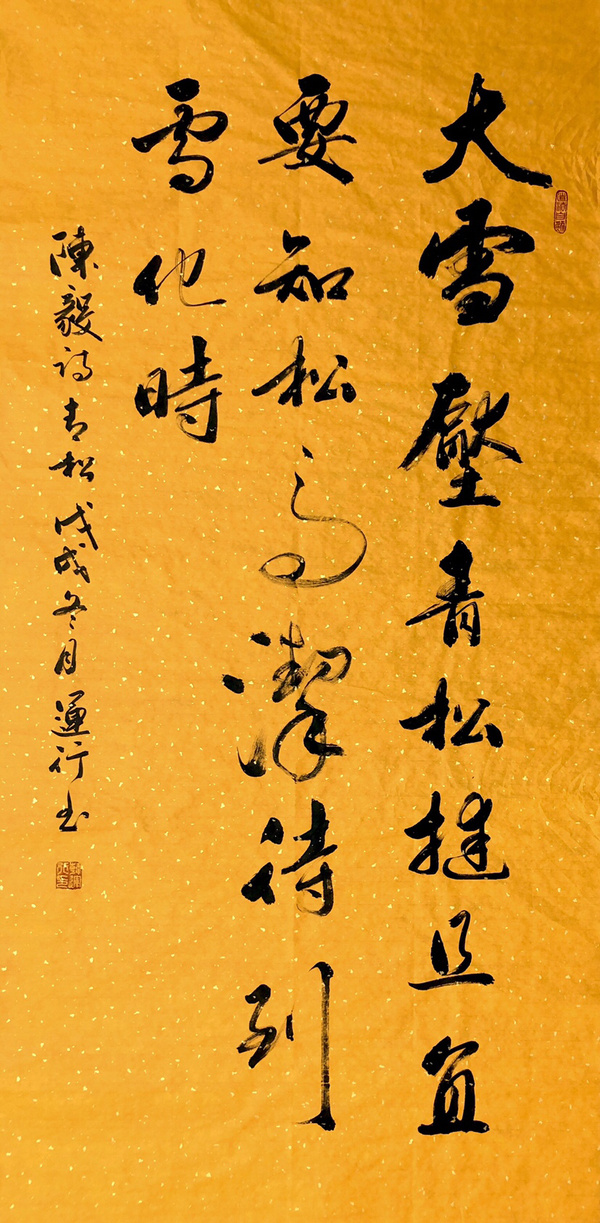 大雪壓青松挺且直
要知松高潔待到
雪化時
陳毅詩青松戊戌冬月運行书